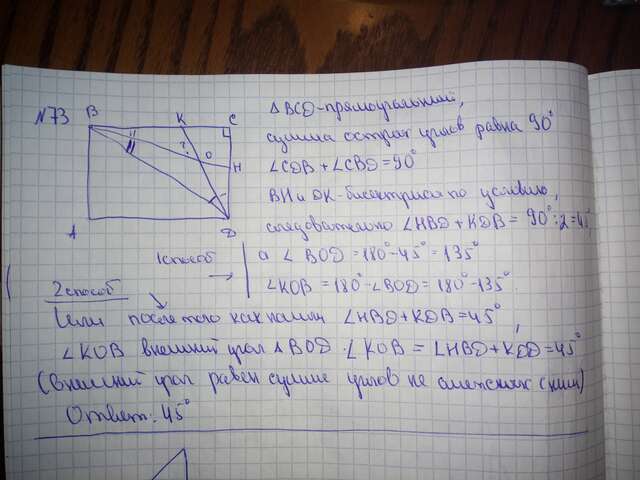 N73
B
K
C
H
O
?
A
D
Δ BCD-прямоугольный,
сумма острых углов равна 90°
∠CDB + ∠CBD = 90°
BH и DK-биссектрисы по условию,
следовательно ∠HBD + KDB = 90°:2=4
1способ → а ∠ BOD = 180°-45° = 135°
∠KOB = 180°-∠BOD = 180°-135°
2способ
Или после того как нашли ∠HBD+KDB = 45°,
∠KOB внешний угол Δ BOD. ∠KOB = ∠HBD+KDB=45°
(внешний угол равен сумме углов не смежных с ним)
Ответ: 45°